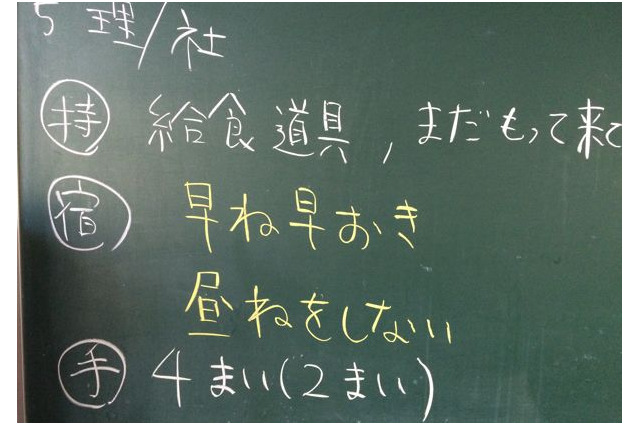 5 理/社
持 給食道具, まだもって来て
宿 早ね早おき
昼ねをしない
手 4まい(2まい)